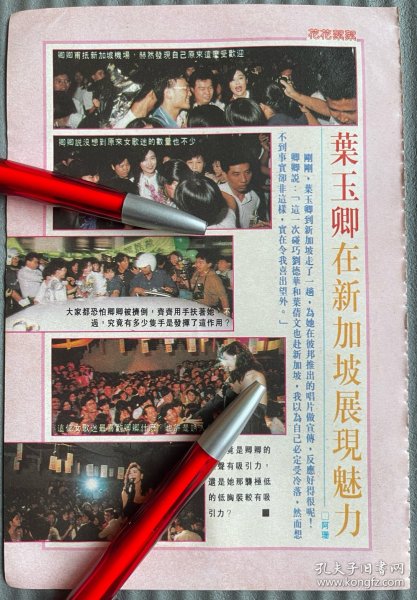 花花絮絮
葉玉卿在新加坡展現魅力
□阿珊
剛剛，葉玉卿到新加坡走了一趟，為她在彼邦推出的唱片做宣傳，反應好得很呢！
卿卿說：「這一次碰巧劉德華和葉蒨文也赴新加坡，我以為自己必定受冷落，然而想
不到事實卻非這樣，實在令我喜出望外。」
卿卿甫抵新加坡機場，赫然發現自己原來這麼受歡迎
卿卿說沒想到原來女歌迷的數量也不少。
大家都恐怕卿卿被擠倒，齊齊用手扶著她
過，究竟有多少隻手是發揮了這作用？
這位女歌迷最喜歡卿卿什
是卿卿的
聲有吸引力，
還是她那襲極低
的低胸裝較有吸
引力？ ■
孔夫子旧书网
www.kongfz.com